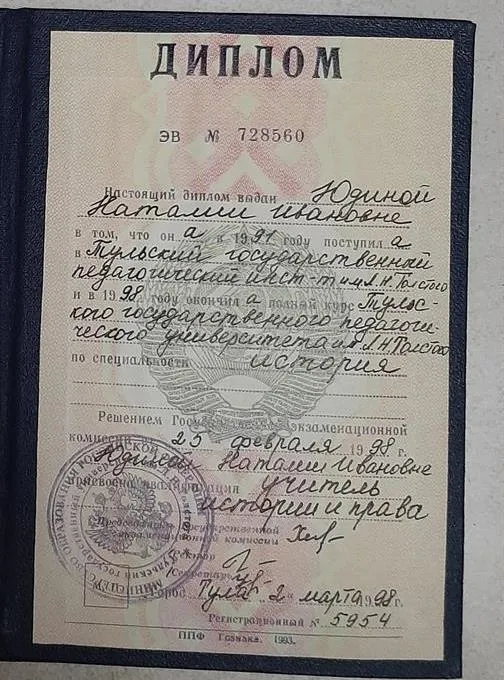 ДИПЛОМ
ЭВ № 728560
Настоящий диплом выдан Юдиной
Наталии Ивановне
в том, что он а в 1991 году поступил а
в Тульский государственный
педагогический инст-т им. Л.Н. Толстого
и в 1998 году окончил а полный курс Тульс-
кого государственного педагоги-
ческого университета им Л.Н Толстого
по специальности история
Решением Государственной экзаменационной
комиссии от 25 февраля 1998 г.
Юдиной Наталии Ивановне
присвоена квалификация учитель
истории и права
Председатель Государственной
экзаменационной комиссии
Ректор
Секретарь
Город Тула „2" марта 1998 г.
Регистрационный № 5954
ППФ Гознака. 1993.